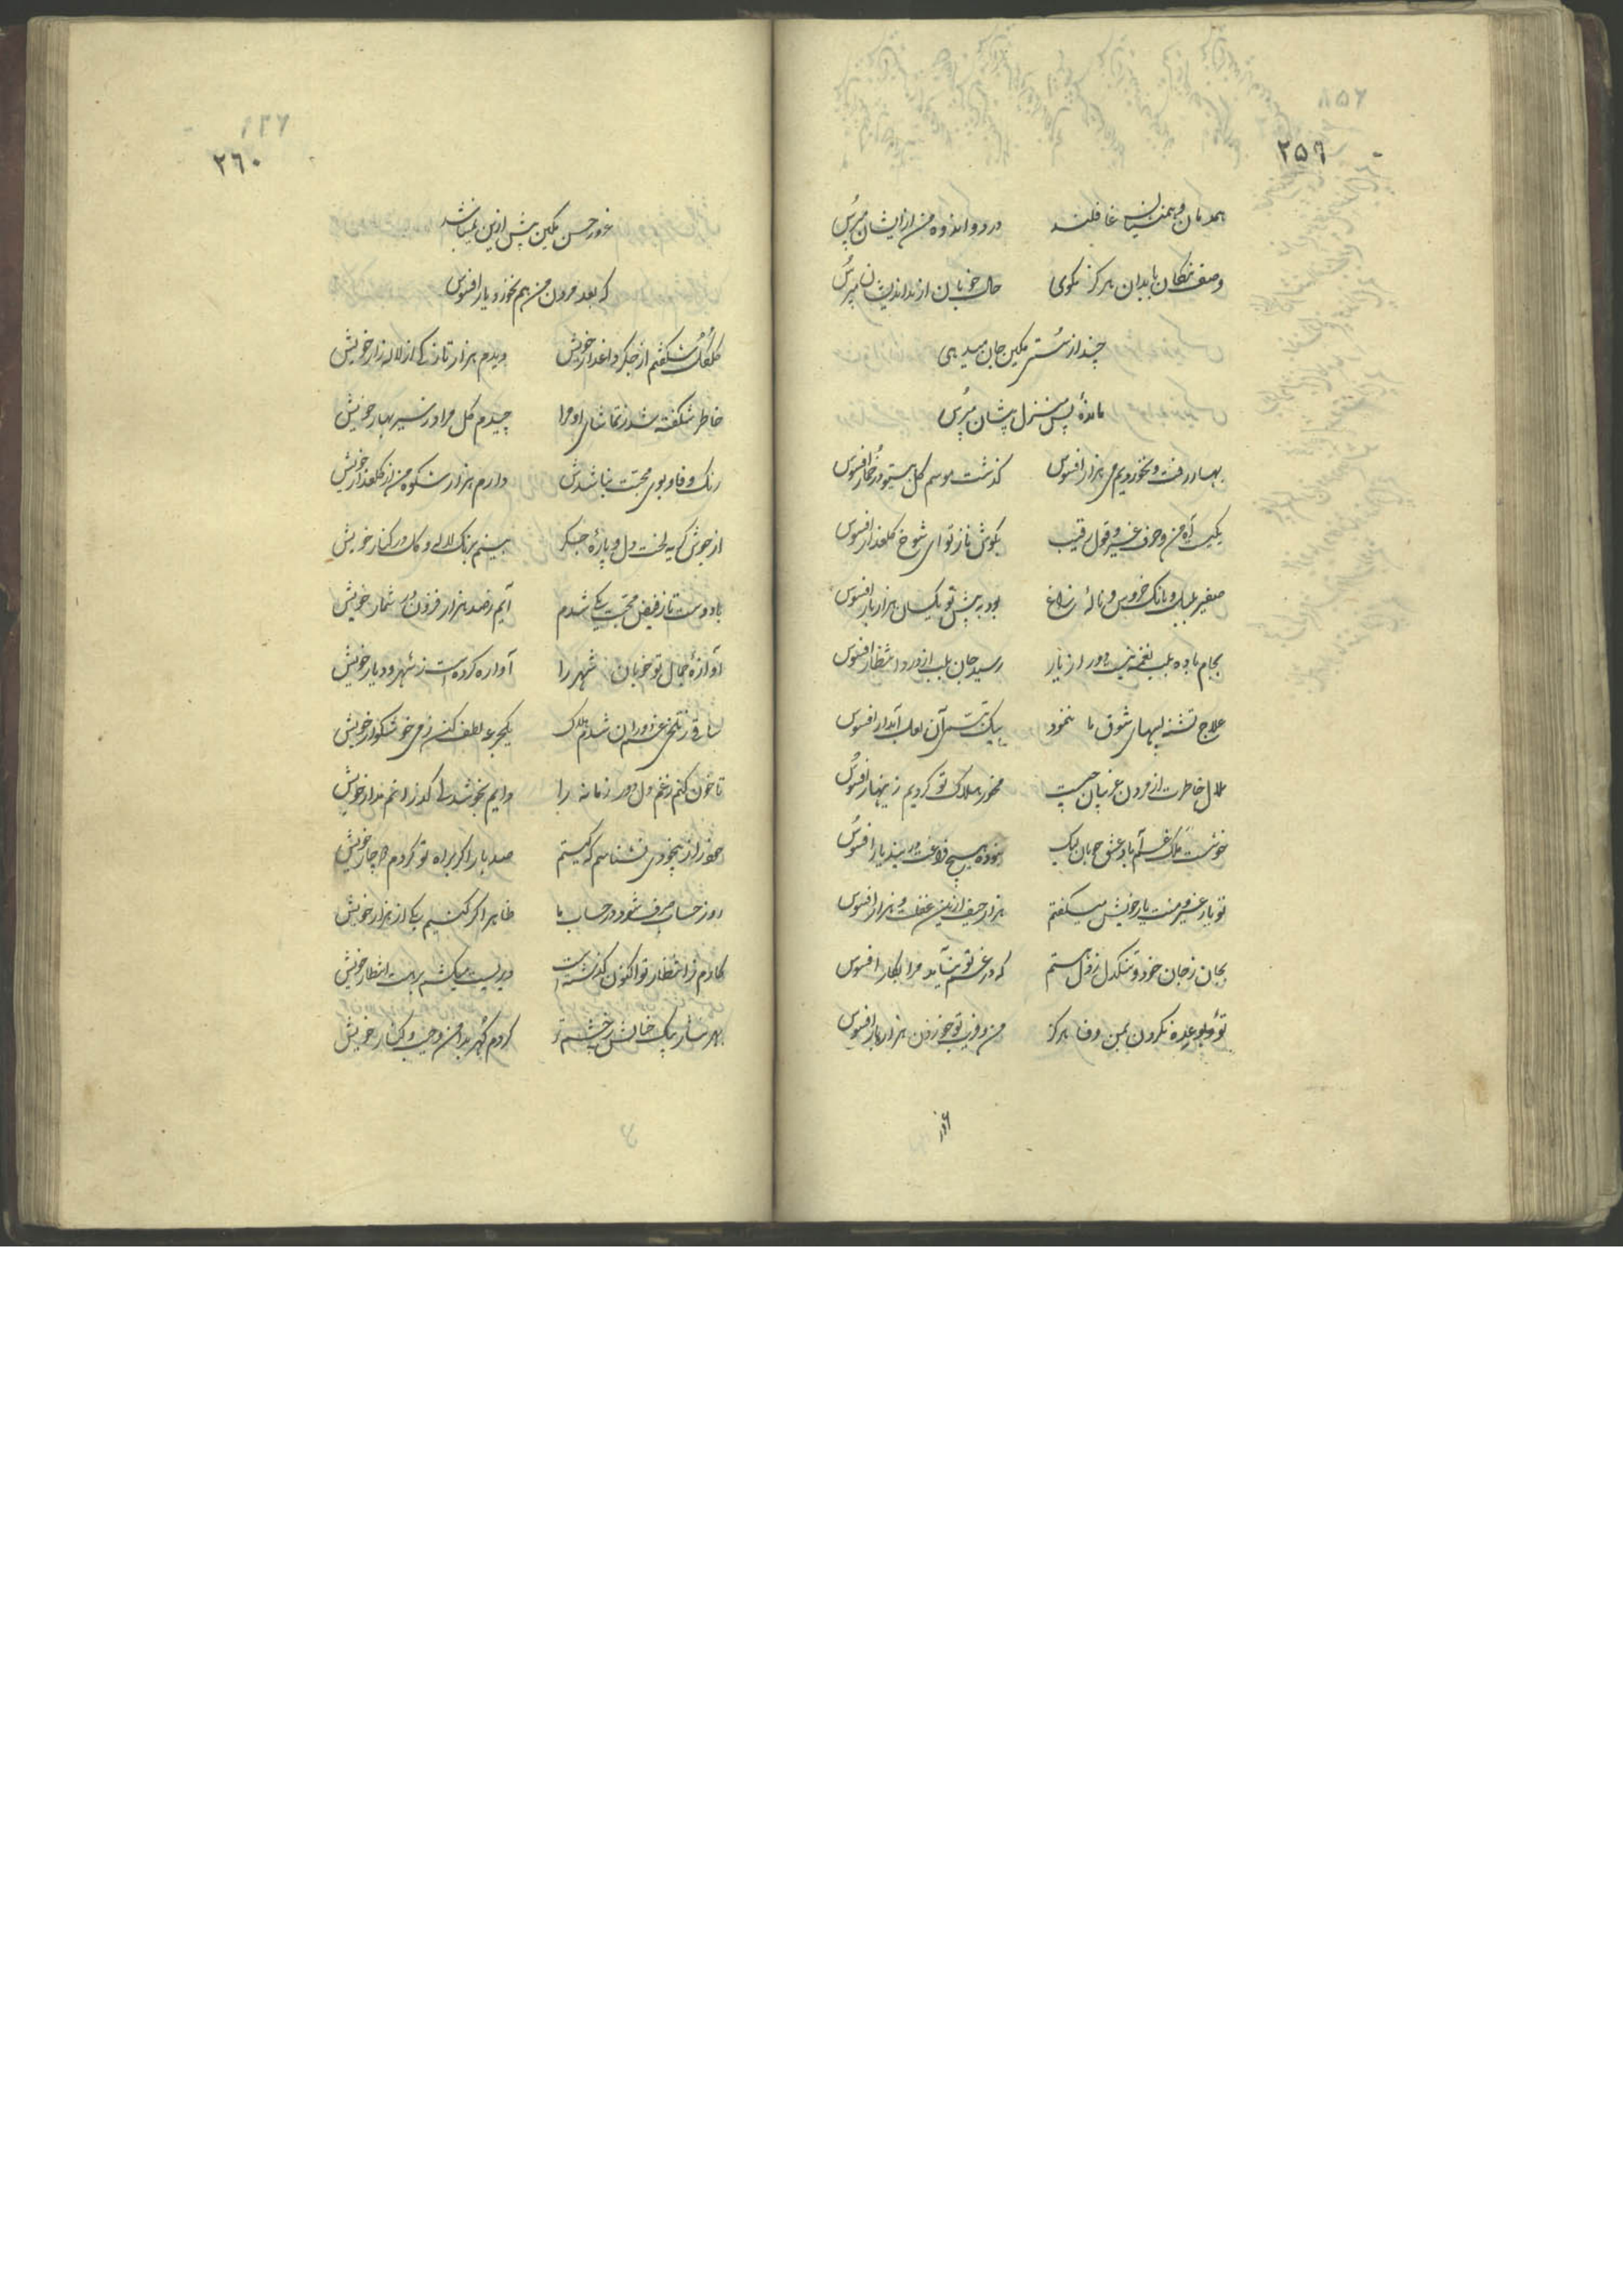 ۲۵۹
همدمان و همنشینان غافلند درد و اندوه من از ایشان مپرس
وصف نیکان با بدان هرگز مگوی حال خوبان از بداندیشان مپرس
چند از سستی مکین جان میدهی
ماندهٔ پس منزل پیشان مپرس
بهار رفت و نخوردیم می هزار افسوس گذشت موسم گل بی تو در خمار افسوس
یکیست آه من و حرف غیر و قول رقیب بگوش ناز تو ای شوخ گلعذار افسوس
صفیر بلبل و بانک خروس و نالهٔ زاغ بود به پیش تو یکسان هزار بار افسوس
بجام باده بلب نغمه نی دور از یار رسید جان بلب از درد انتظار افسوس
علاج تشنه لبهای شوق ما ننمود بیک تبسم آن لعل آبدار افسوس
ملال خاطرت از مردن غریبان چیست مخور هلاک تو کردیم زینهار افسوس
خوشست ملک غم آباد عشق خوبان لیک نبوده هیچ فراغت در این دیار افسوس
تو یار غیر و منت یار خویش میگفتم هزار حیف ازین غفلت و هزار افسوس
بجان ز جان خود و تنگدل ز دل هستم که در غم تو نیاید مرا بکار افسوس
تو و بوعده نکردن بمن وفا هرگز من و فریب تو خوردن هزار بار افسوس
غرور
۲۶۰
غرور حسن مکین پیش ازین نمیباشد
که بعد مردن من هم نخورد یار افسوس
گل گل شگفتم از جگر داغدار خویش دیدم هزار تازگی از لاله زار خویش
خاطر شکفته شد ز تماشای او مرا چیدم گل مراد ز سیر بهار خویش
رنک وفا و بوی محبت نباشدش دارم هزار شکوه من از گلعذار خویش
از جوش گریه لخت دل و پارهٔ جگر بینم برنک لاله و گل در کنار خویش
با دوست تا ز فیض محبت یکی شدم آیم ز صد هزار فزون در شمار خویش
آوازهٔ جمال تو خوبان شهر را آواره کرده است ز شهر و دیار خویش
ساقی ز تلخی غم دوران شدم هلاک یکجرعه لطف کن ز می خوشگوار خویش
تا خون کنم ز غم دل دور زمانه را دایم بخوشدلی گذرانم مدار خویش
هنوز از بیخودی نشناسم که کیستم صد بار اگر براه تو گردم دچار خویش
روز حساب صرف شود در حساب ما ظاهر اگر کنیم یکی از هزار خویش
کارم ز انتظار تو اکنون گذشته است دیریست میکشم برهت انتظار خویش
بهر نثار پیک خیالش ز چشم تر کردم گهر بدامن و جیب و کنار خویش